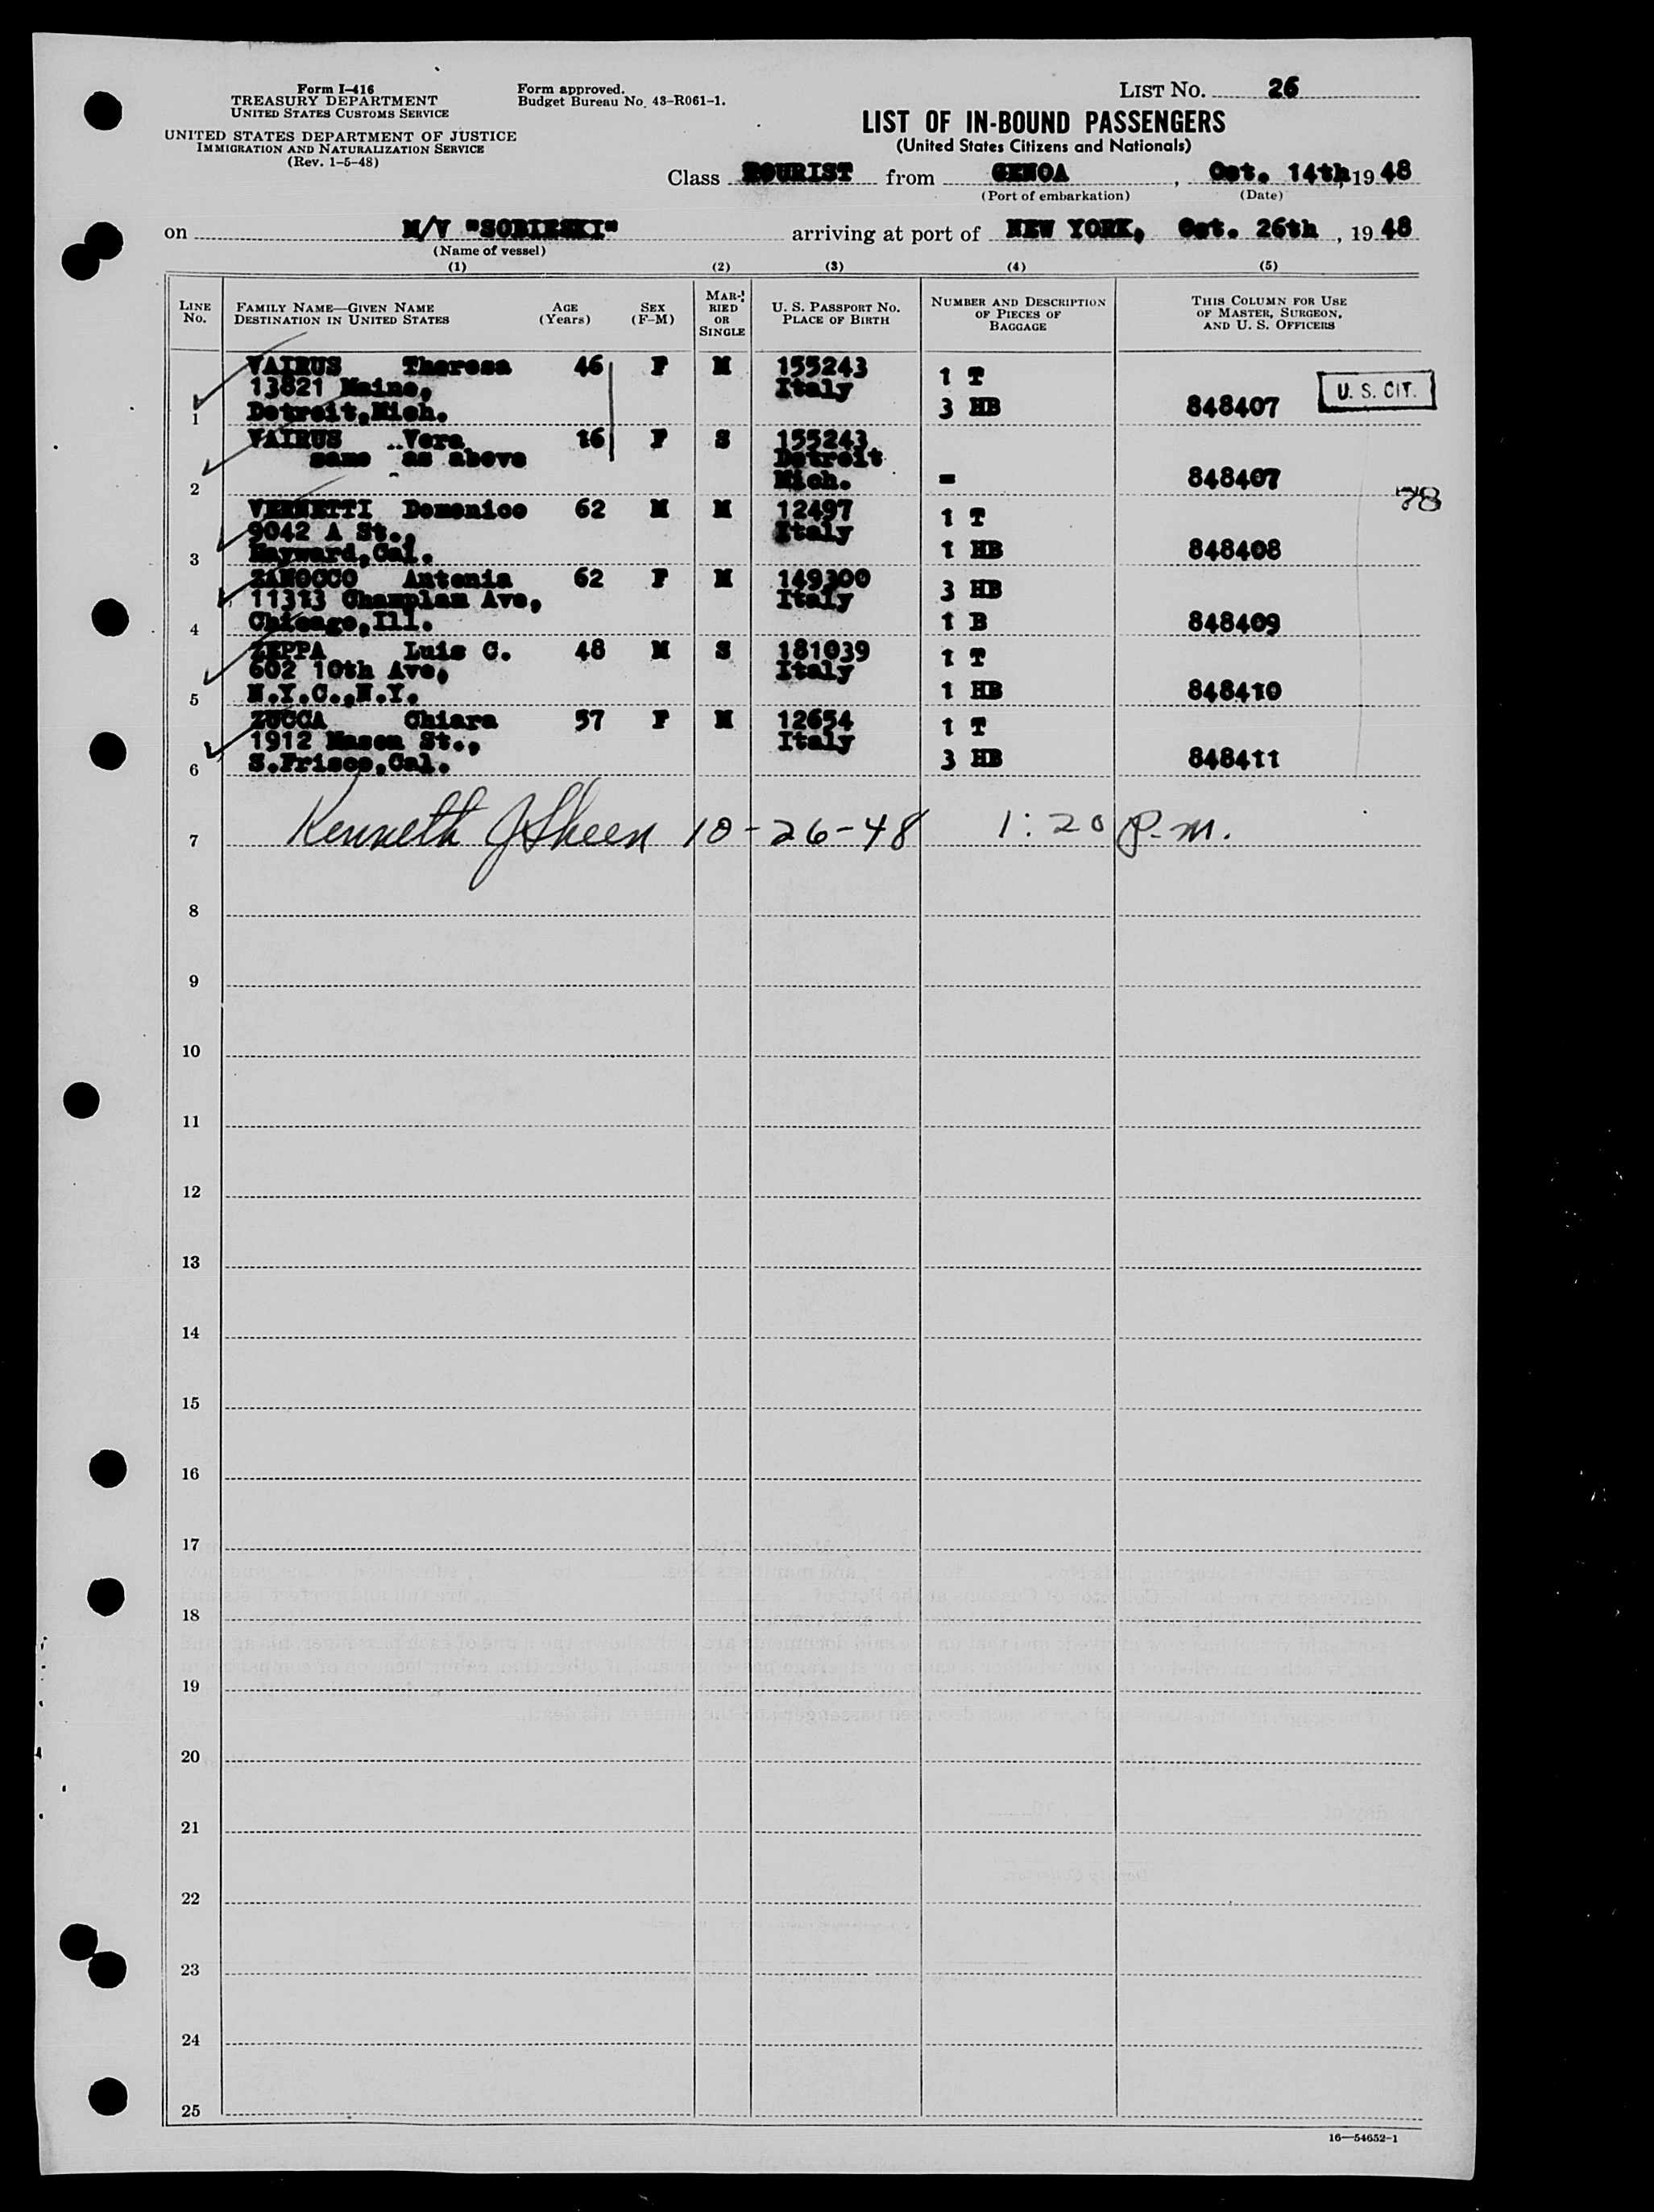 Form I-416
TREASURY DEPARTMENT
UNITED STATES CUSTOMS SERVICE
UNITED STATES DEPARTMENT OF JUSTICE
IMMIGRATION AND NATURALIZATION SERVICE
(Rev. 1-5-48)
Form approved.
Budget Bureau No. 43-R061-1.
LIST No. 26
LIST OF IN-BOUND PASSENGERS
(United States Citizens and Nationals)
Class TOURIST from GENOA, Oct. 14th, 1948
(Port of embarkation) (Date)
on M/V "SOBIESKI" arriving at port of NEW YORK, Oct. 26th, 1948
(Name of vessel)
(1) (2) (3) (4) (5)
LINE No.
FAMILY NAME—GIVEN NAME
DESTINATION IN UNITED STATES
AGE
(Years)
SEX
(F-M)
MARRIED OR SINGLE
U. S. PASSPORT NO.
PLACE OF BIRTH
NUMBER AND DESCRIPTION
OF PIECES OF
BAGGAGE
THIS COLUMN FOR USE
OF MASTER, SURGEON,
AND U. S. OFFICERS
VAIRUS Theresa 46 F M 155243 1 T
13821 Maine, Italy U. S. CIT.
1 Detroit,Mich. 3 HB 848407
VAIRUS Vera 16 F S 155243
same as above Detroit
2 Mich. = 848407
78
VERNETTI Domenico 62 M M 12497 1 T
9042 A St., Italy
3 Hayward,Cal. 1 HB 848408
ZANOCCO Antonia 62 F M 149300 3 HB
11313 Champlam Ave, Italy
4 Chicago,Ill. 1 B 848409
ZEPPA Luis C. 48 M S 181039 1 T
602 10th Ave, Italy
5 N.Y.C.,N.Y. 1 HB 848410
ZUCCA Chiara 57 F M 12654 1 T
1912 Mason St., Italy
6 S.Frisco,Cal. 3 HB 848411
7 Kenneth J Sheen 10-26-48 1:20 P.M.
8
9
10
11
12
13
14
15
16
17
18
19
20
21
22
23
24
25
16—54652-1